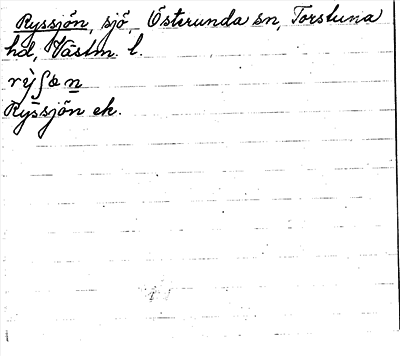 Ryssjön, sjö, Österunda sn, Torstuna
hd, Västm. l.
rỳʃœn
Ryssjön ek.